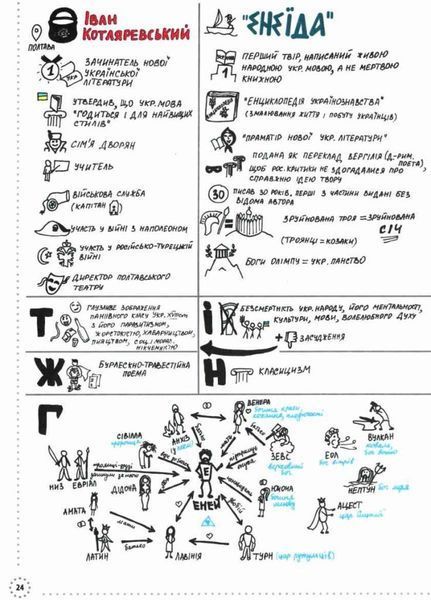 Іван
Котляревський
Полтава
Зачинатель нової
української
літератури
Утвердив, що укр. мова
"годиться і для найвищих
стилів"
Сім'я дворян
Учитель
Військова служба
(капітан)
Участь у війні з Наполеоном
Участь у російсько-турецькій
війні
Директор полтавського
театру
"Енеїда"
Перший твір, написаний живою
народною укр. мовою, а не мертвою
книжною
"Енциклопедія українознавства"
(змалювання життя і побуту українців)
"Праматір нової укр. літератури"
Подана як переклад Вергілія (д-рим.
поета),
щоб рос. критики не здогадалися про
справжню ідею твору
30 писав 30 років, перші 3 частини видані без
відома автора
Зруйнована Троя = зруйнована
Січ
(троянці = козаки)
Боги Олімпу = укр. панство
Т
Глузливе зображення
панівного класу укр.
з його паразитизмом,
жорстокістю, хабарництвом,
пияцтвом, соц. і морал.
нікчемністю
І
Безсмертність укр. народу, його ментальності,
культури, мови, волелюбного духу
+ засудження
Ж
Бурлескно-травестійна
поема
Н
Класицизм
Г
Венера
богиня краси,
кохання,
Анхіз
Сівілла
Зевс
верховний
бог
Вулкан
Еол
бог вітрів
Нептун
бог моря
Ацест
цар
Юнона
богиня
шлюбу
Низ
Евріал
Дідона
Еней
Е
Амата
мати
Латин
батько
Лавінія
Турн (цар рутульців)
24